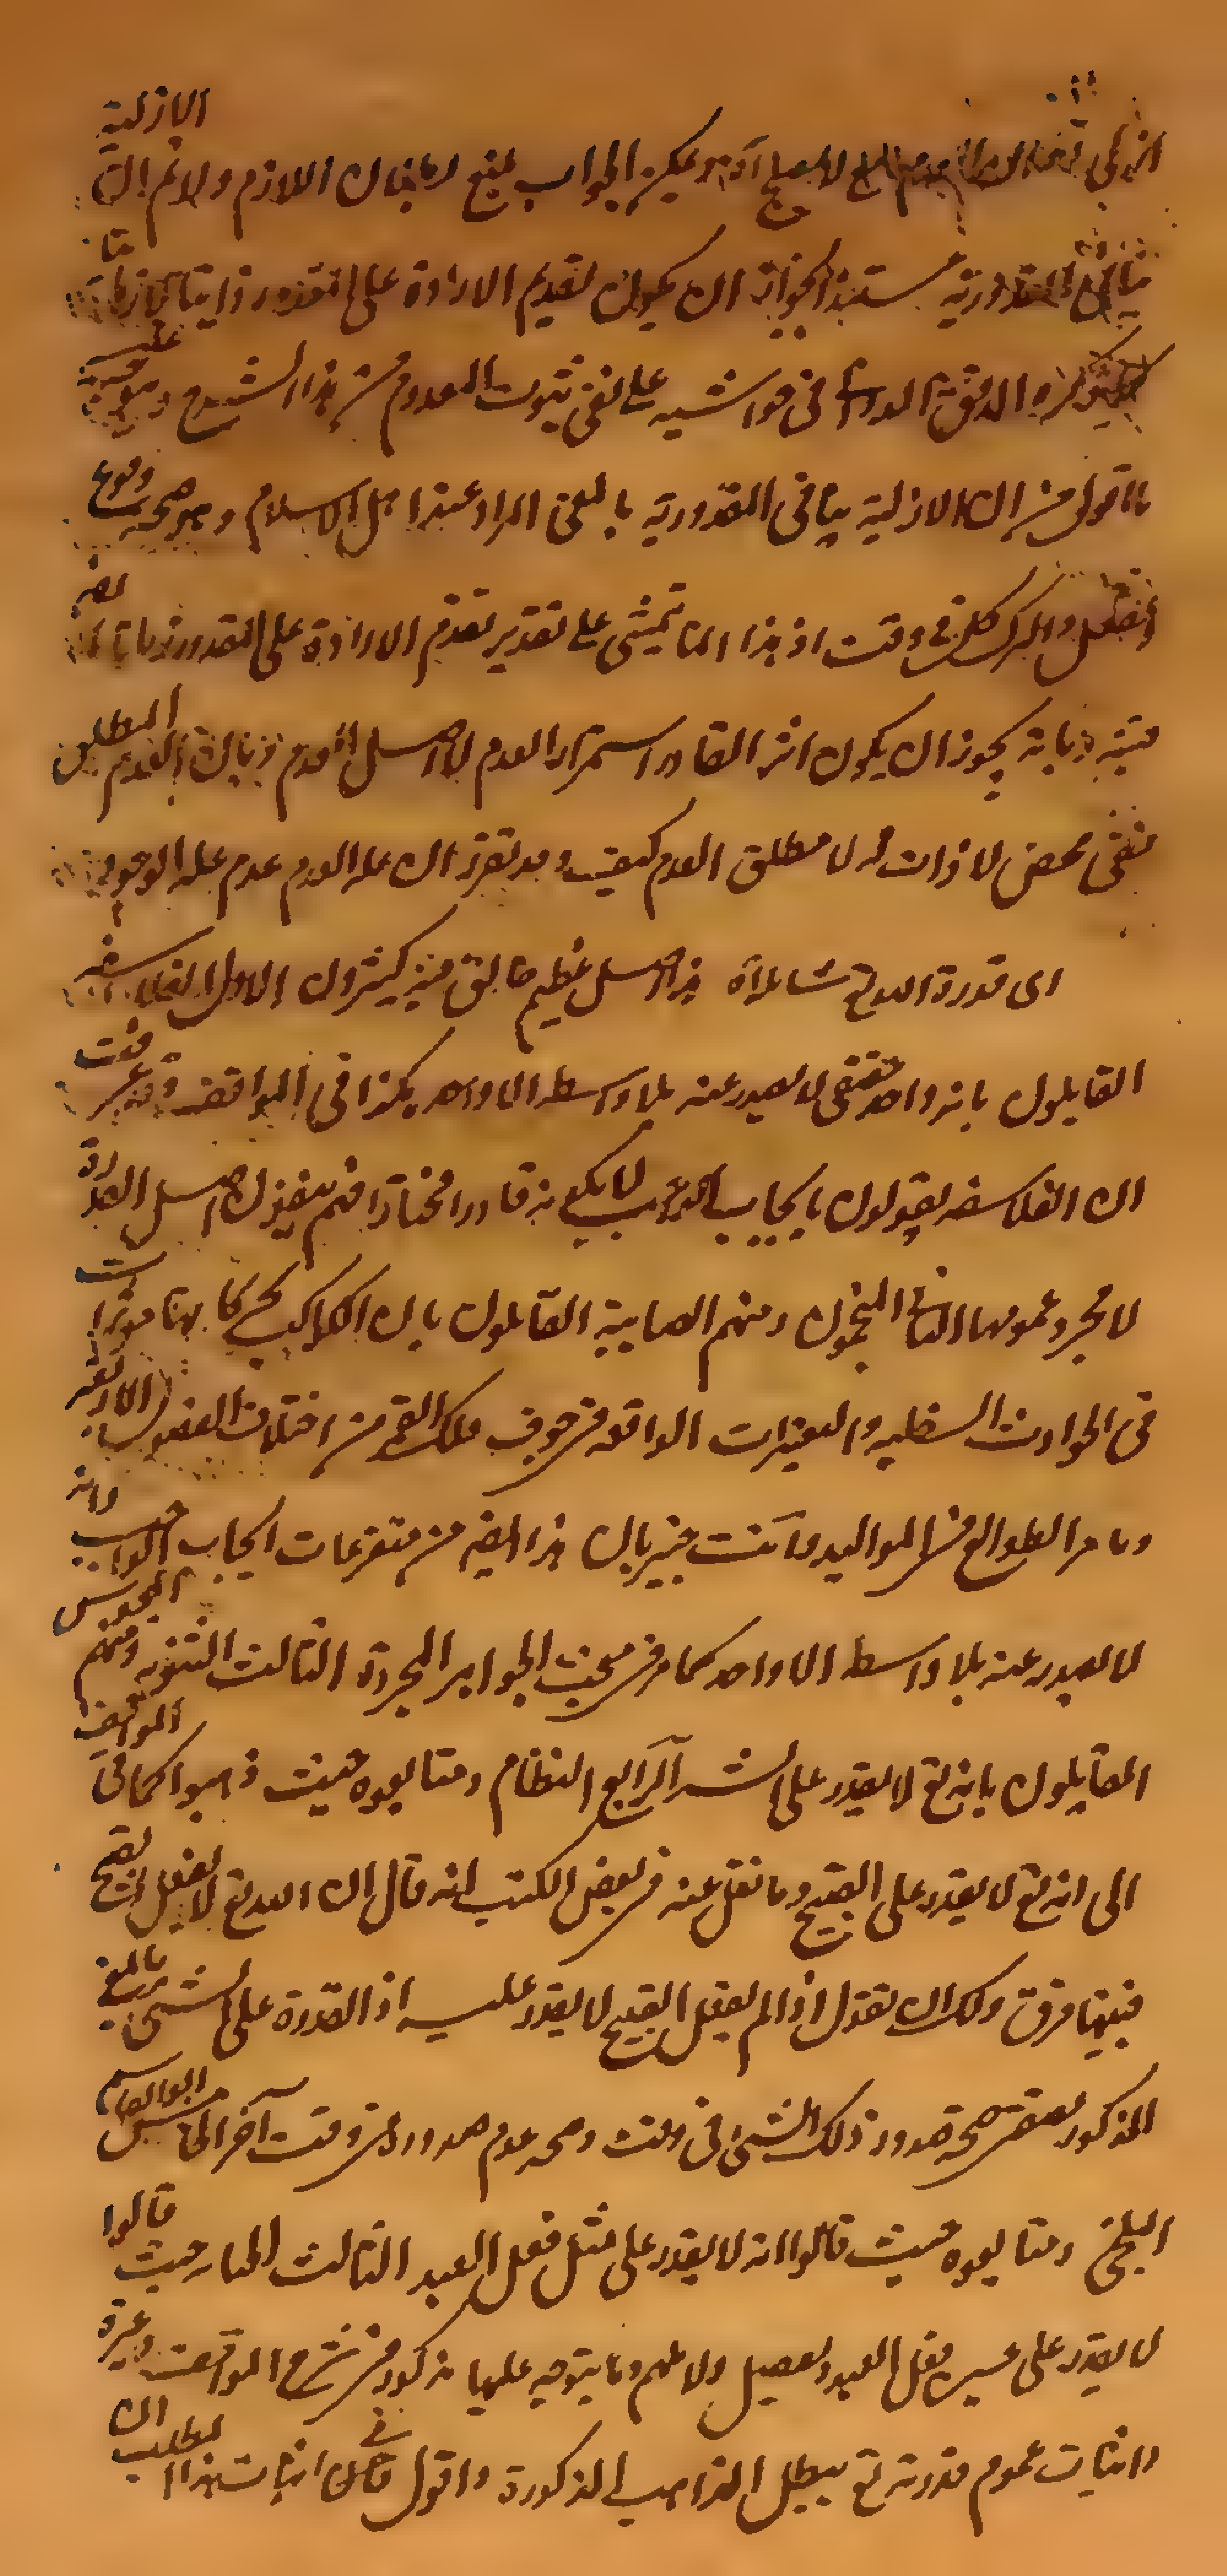 ازلي لا يصلح اه ويمكن الجواب بمنع بطلان اللازم ولا نم ان الازلية
تنافى المقدورية مستندا بجواز ان يكون تقديم الارادة على المقدور ذاتيا لا زمانيا
كما ذكره المدقق في حواشيه على نفى ثبوت المعدوم من هذا الشرح ويتوجه عليه
ما اقول من ان الازلية ينافى المقدورية بالمعنى المراد عند اهل الاسلام وهو صحة وقوع
الفعل والترك كل في وقت اذ هذا انما يتمشى على تقدير تقدم الارادة على المقدور زمانا
بانه يجوز ان يكون اثر القادر استمرار العدم لا اصل العدم بان العدم المطلق
نفى محض لا ذات له لا مطلق العدم كيف وقد تقرر ان علة العدم عدم علة الوجود
اى قدرة الله تع شاملة اه هذا اصل عظيم خالف فيه كثيرون الاول الفلاسفة
القايلون بانه واحد حقيقى لا يصدر عنه بلا واسطة الا واحد هكذا فى المواقف وقد عرفت
ان الفلاسفه يقولون بايجاب الواجب لا بكونه قادرا مختارا فهم ينفون اصل القدرة
لا مجرد عمومها الثانى المنجمون ومنهم الصابية القائلون بان الكواكب بحركاتها مؤثرات
فى الحوادث السفليه والتغيرات الواقعه فى جوف فلك القمر من اختلاف الفصول الاربعة
وتاثير الطوالع فى المواليد وانت خبير بان هذا ايضا من متفرعات ايجاب الواجب لانه
لا يصدر عنه بلا واسطة الا واحد كما مر فى مبحث الجواهر المجردة الثالث الثنوية ومنهم المجوس
القايلون بانه تع لا يقدر على الشر الرابع النظام ومتابعوه حيث ذهبوا كما في المواقف
الى انه تع لا يقدر على القبيح وما نقل عنه فى بعض الكتب انه قال ان الله تع لا يفعل القبيح
فبينهما فرق ولك ان تقول اذا لم يفعل القبيح لا يقدر عليه اذ القدرة على الشئ بالمعنى
المذكور يقتضى صحة صدور ذلك الشئ فى وقت وصحة عدم صدوره فى وقت آخر الخامس ابو القاسم
البلخى ومتابعوه حيث قالوا انه لا يقدر على مثل فعل العبد الثالث الجبائية حيث قالوا
لا يقدر على عين فعل العبد وتفصيل دلائلهم وما يتوجه عليها مذكور فى شرح المواقف وغيره
واثبات عموم قدرته تع يبطل المذاهب المذكورة واقول فى اثبات هذا المطلب ان